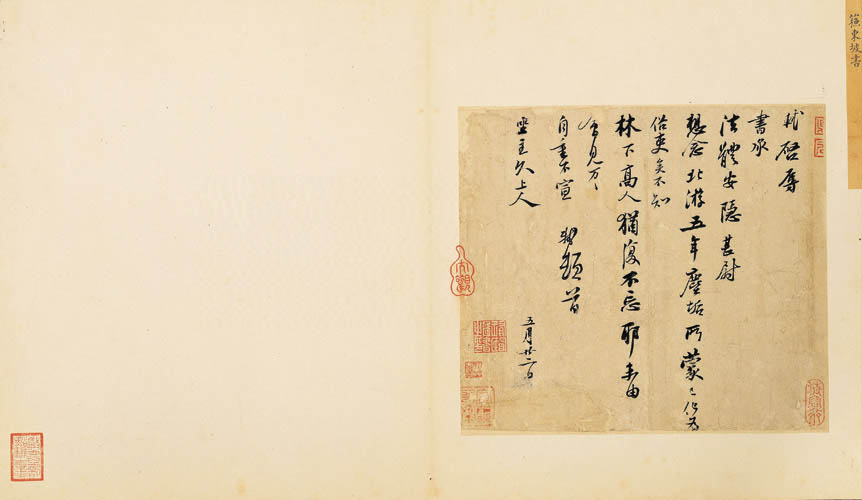 蘇東坡書
軾啓辱
書承
法體安隱甚尉
想念北游五年塵垢所蒙已化為
俗吏矣不知
林下高人猶復不忘耶未由
會見万〻
自重不宣 軾頓首
坐主久上人
五月廿二日